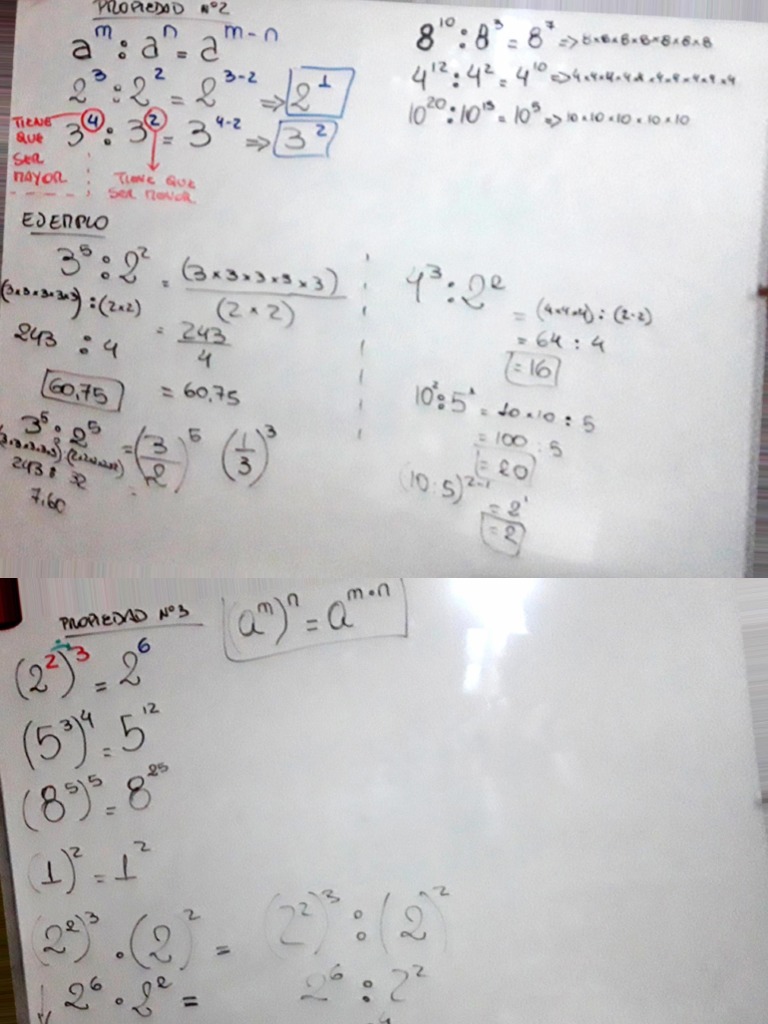 PROPIEDAD Nº2
aᵐ : aⁿ = aᵐ⁻ⁿ
2³ : 2² = 2³⁻² => 2¹
3⁴ : 3² = 3⁴⁻² => 3²
TIENE
QUE
SER
MAYOR
TIENE QUE
SER MENOR
8¹⁰ : 8³ = 8⁷ => 8×8×8×8×8×8×8
4¹² : 4² = 4¹⁰ => 4×4×4×4×4×4×4×4×4×4
10²⁰ : 10¹⁵ = 10⁵ => 10×10×10×10×10
EJEMPLO
3⁵ : 2² = (3×3×3×3×3)
(2×2)
(3×3×3×3×3) : (2×2)
243 : 4 = 243
4
60,75 = 60,75
3⁵ : 2⁵ = (3/2)⁵ (1/3)³
243 : 32
7,60
4³ : 2²
= (4×4×4) : (2×2)
= 64 : 4
= 16
10² : 5¹ = 10×10 : 5
= 100 : 5
= 20
(10:5)²⁻¹
= 2¹
= 2
PROPIEDAD Nº3
(aᵐ)ⁿ = aᵐ·ⁿ
(2²)³ = 2⁶
(5³)⁴ = 5¹²
(8⁵)⁵ = 8²⁵
(1)² = 1²
(2²)³ · (2)² =
2⁶ · 2² =
(2²)³ : (2)²
2⁶ : 2²